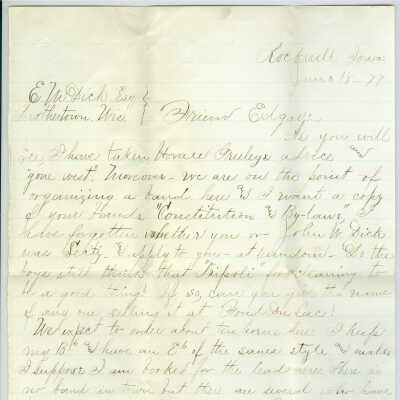 Iowa
June 18-77
E M Dick Esq
Brothertown Wis
Friend Edgar
As you will
see I have taken Horace Greeleys advice and
"gone west". Moreover - we are on the point of
organizing a band here & I want a copy
of your bands "Constitution & By-laws". I
have forgotten whether you or John W. Dick
was Secty. & apply to you - at random - Do the
boys still think that Tripoli for cleaning to
be a good thing? If so, can you give the name
of any one selling it at Fond Du Lac?
We expect to order about the same here I keep
my Bb & I have an Eb of the same style & make
I suppose I am booked for the lead here There is
no band in town but there are several who have